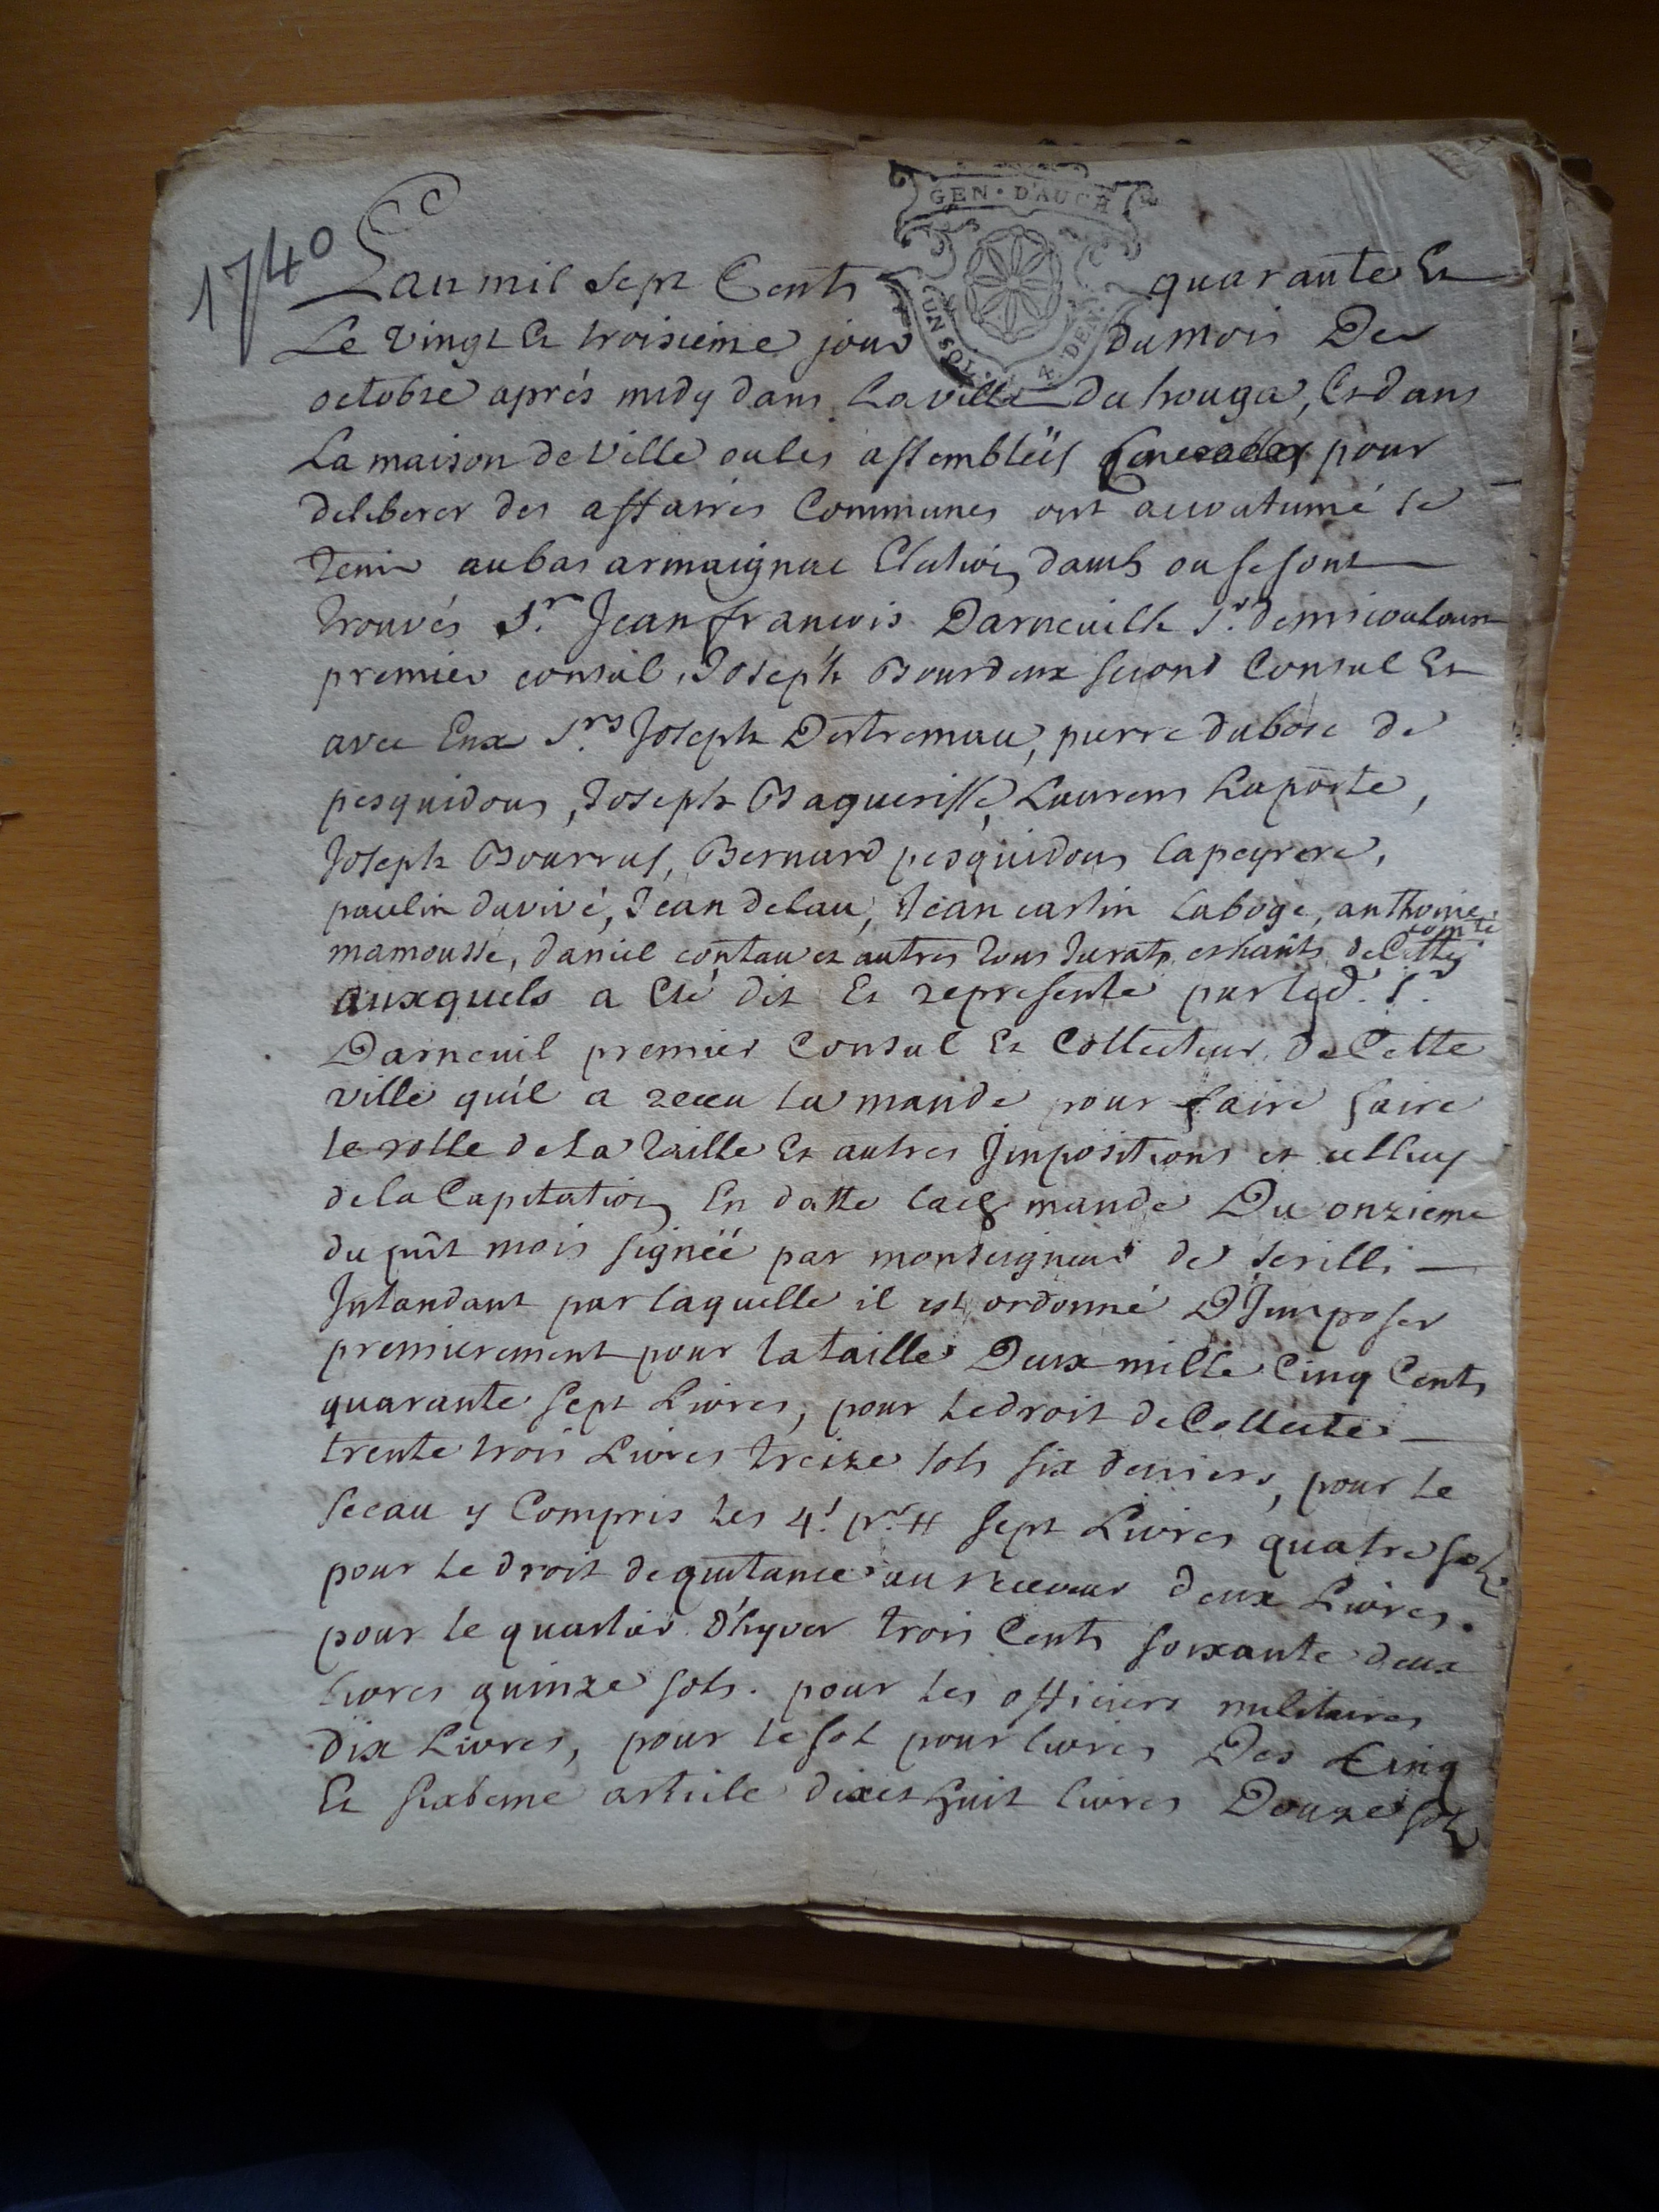 1740
GEN · D'AUCH
UN SOL · 4 · DEN.
Lan mil sept Cents quarante Et
Le vingt Et troisieme jour du mois De
octobre aprés midy dans La ville du houga, Et dans
La maison de Ville ou les assembléës Generalles pour
deliberer des affaires Communes ont acoutumé se
tenir au bas armaignac Election dauch ou se sont
trouvés Sr. Jean francois Darneuilh Sr. de
premier consul, Joseph Bourdeux second Consul Et
avec Eux Srs. Joseph Destremau, pierre dubosc de
pesquidous, Joseph Baguerisse, Laurens Laporte,
Joseph Bourrus, Bernard pesquidous lapeyrere,
paulin duvivé, Jean delau, Jean castin laboge, anthoine
mamousse, daniel contau et autres tous Jurats et hants de Cette comté
auxquels a Eté dit Et representé par led. Sr.
Darneuil premier Consul Et Collecteur de Cette
ville quil a receu la mande pour faire faire
le rolle de La taille Et autres Impositions et celluy
de la Capitation En datte lad mande Du onzieme
du pnt mois signéë par monseigneur de serilli
Intandant par laquelle il est ordonné D'Imposer
premierement pour la taille Deux mille Cinq Cents
quarante sept Livres, pour Le droit de Collecte
trente trois Livres treize sols six deniers, pour Le
sceau y Compris Les 4d. pr. tt sept Livres quatre sols
pour Le droit de quitance au receveur deux Livres.
pour le quartier d'hyver trois Cents soixante deux
livres quinze sols. pour Les officiers militaires
dix Livres, pour le sol pour livres Des Cinq
Et sixieme article dix et huit livres Douze sols